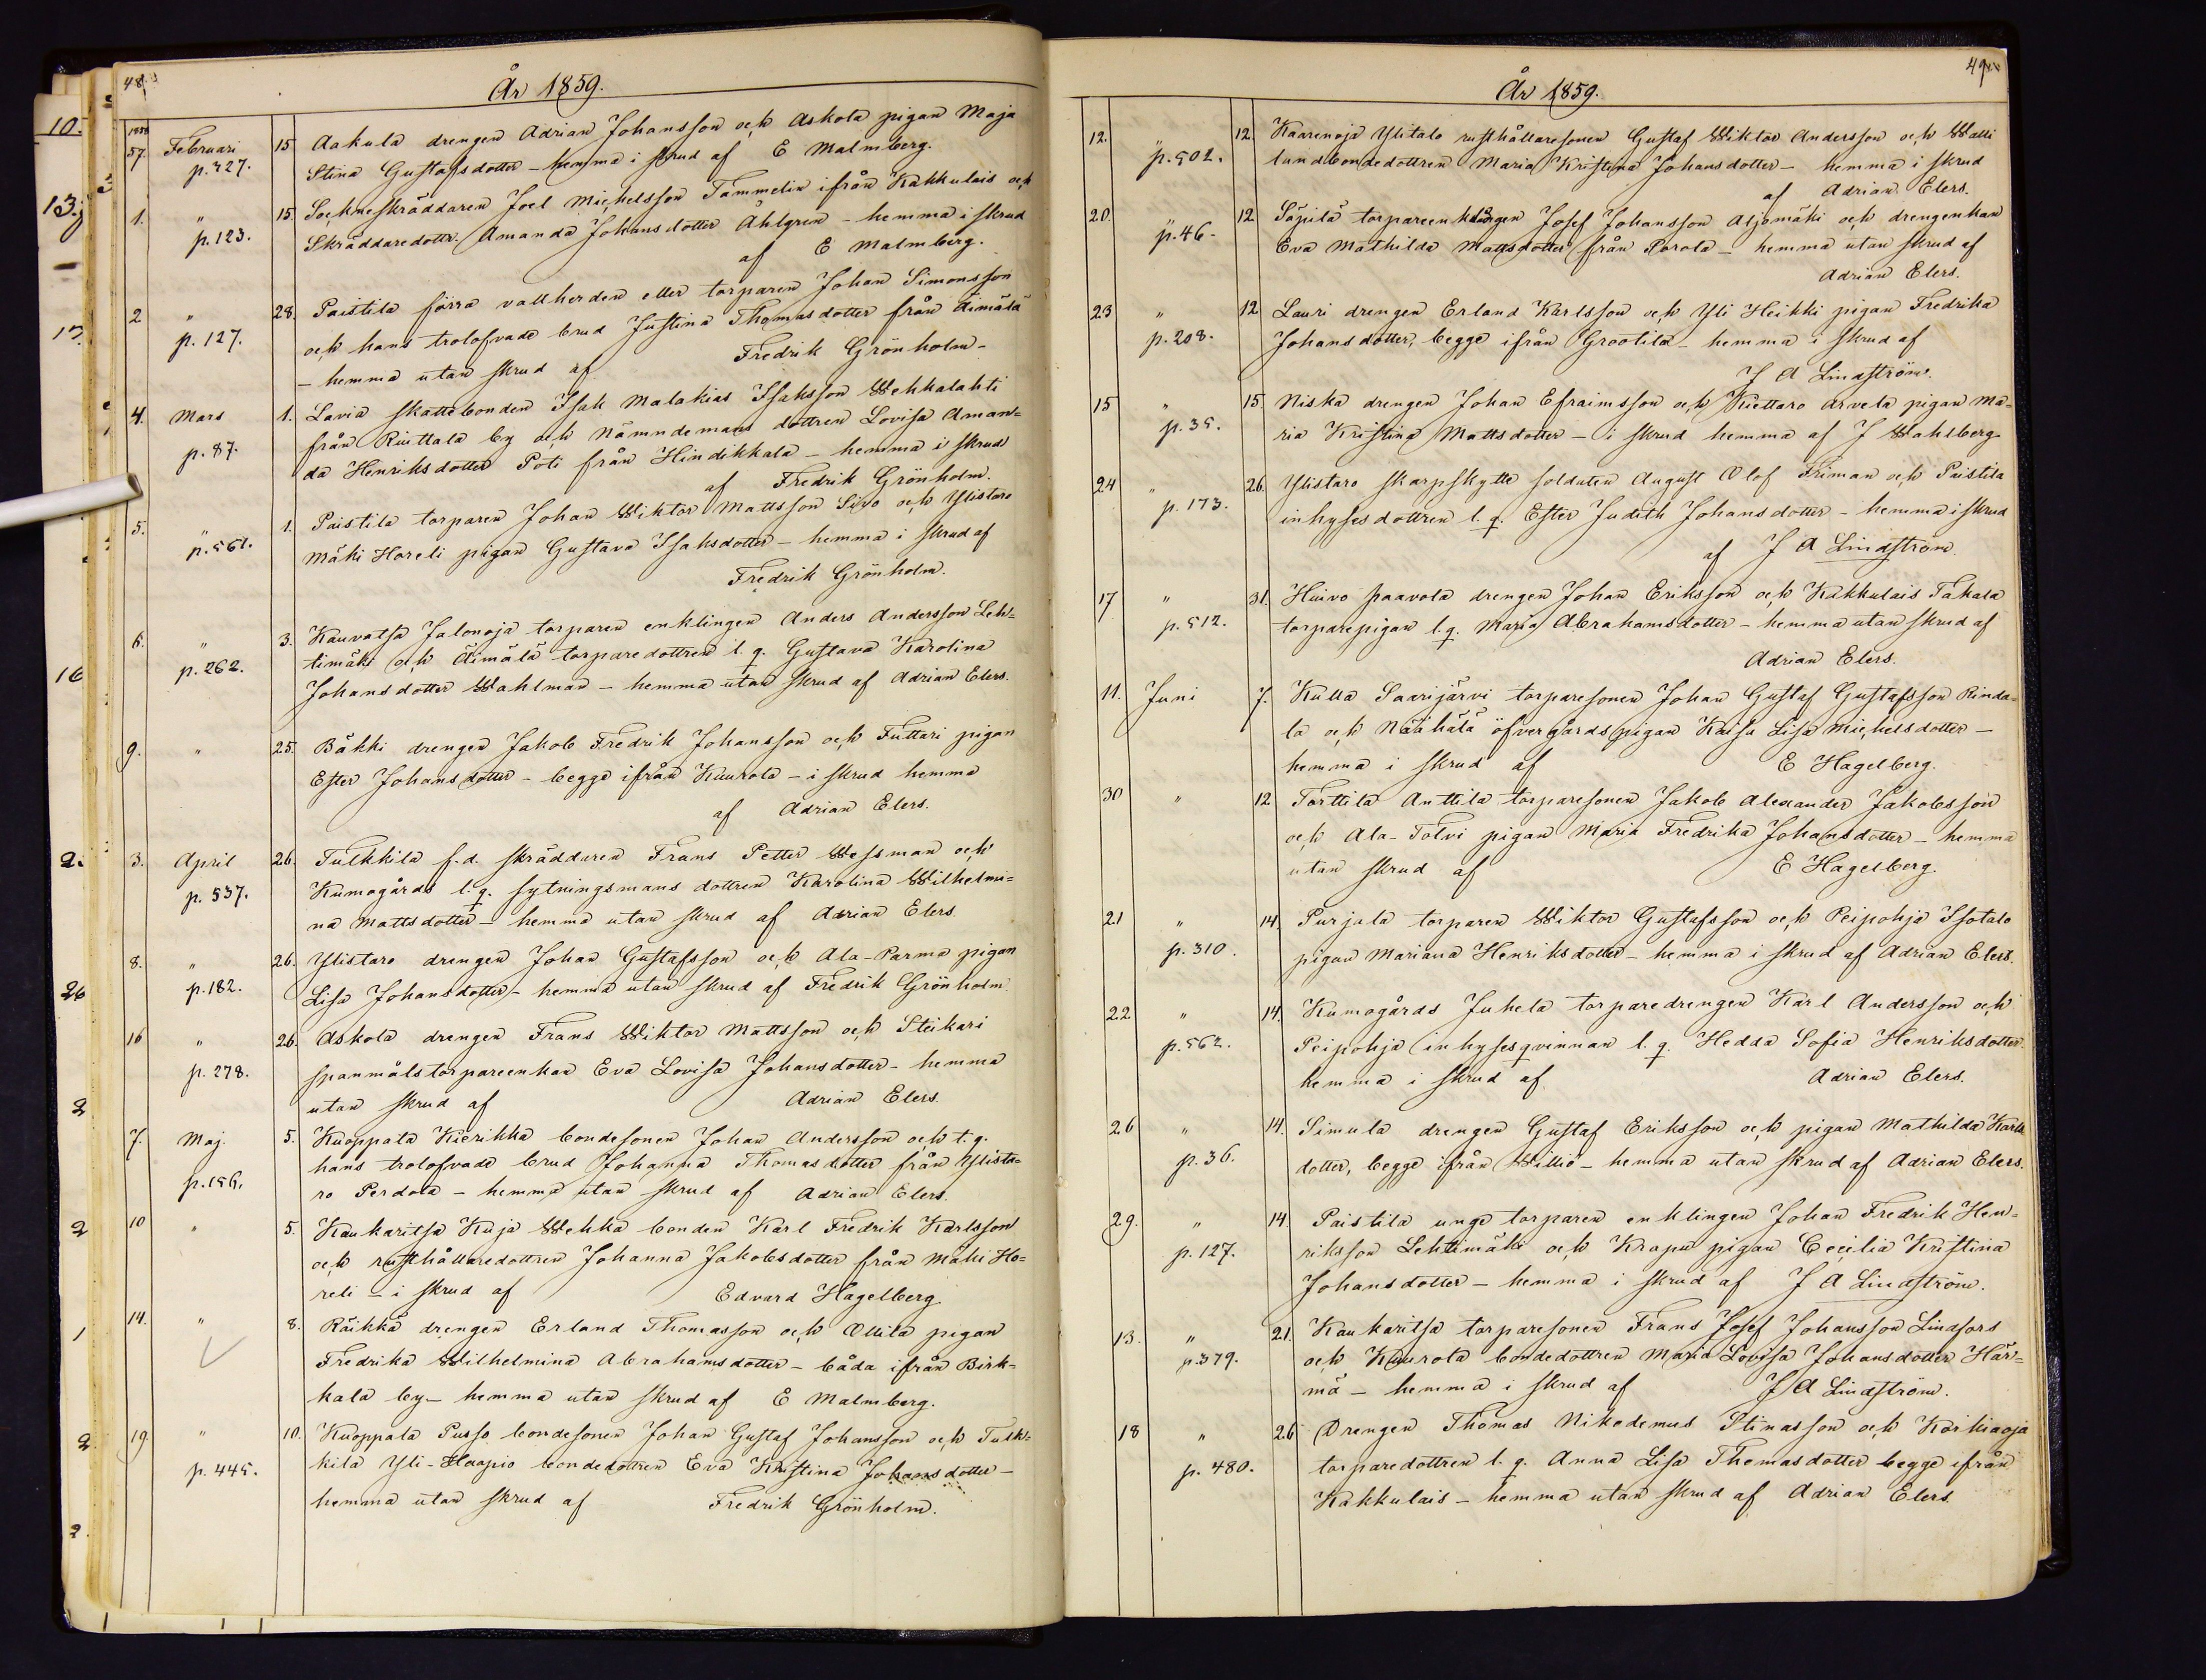 48.
År 1859.
1858
57. Februari 15. Aakula drengen Adrian Johansson och Askola pigan Maja
p. 327. Stina Gustafsdotter - hemma i skrud af E Malmberg.
1. " 15. Sockneskräddaren Joel Michelsson Tammelin ifrån Kakkulais och
p. 123. Skräddaredottr. Amanda Johansdotter Åhlgren - hemma i skrud
af E Malmberg.
2 " 28. Paistila förra vallherden eller torparen Johan Simonsson
p. 127. och hans trolofvade brud Justina Thomasdotter från Äimälä
- hemma utan skrud af Fredrik Grönholm -
4. Mars 1. Lavia skattebonden Isak Malakias Isaksson Wehkalahti
p. 87. från Riuttala by och Nämndemans dottren Lovisa Aman=
da Henriksdotter Poti från Hindikkala - hemma i skrud
af Fredrik Grönholm.
5. " 1. Paistila torparen Johan Wiktor Mattsson Sivo och Ylistaro
p. 561. Mäki Horeli pigan Gustava Isaksdotter - hemma i skrud af
Fredrik Grönholm.
6. " 3. Kauvatsa Jalonoja torparen enklingen Anders Andersson Leh=
p. 262. timäki och Äimälä torparedottren l. q. Gustava Karolina
Johansdotter Wahlman - hemma utan skrud af Adrian Elers.
9. " 25. Bäkki drengen Jakob Fredrik Johansson och Futtari pigan
Ester Johansdotter - begge ifrån Kuurola - i skrud hemma
af Adrian Elers.
3. April 26. Tulkkila f.d. skräddaren Frans Petter Wessman och
p. 537. Kumogårds l. q. sytningsmans dottren Karolina Wilhelmi=
na Mattsdotter - hemma utan skrud af Adrian Elers.
8. " 26. Ylistaro drengen Johan Gustafsson och Ala-Parma pigan
p. 182. Lisa Johansdotter - hemma utan skrud af Fredrik Grönholm.
16 " 26. Askola drengen Frans Wiktor Mattsson och Steikari
p. 278. spanmålstorpareenkan Eva Lovisa Johansdotter - hemma
utan skrud af Adrian Elers.
7. Maj. 5. Kuoppala Kierikka bondesonen Johan Andersson och t. q.
p. 156. hans trolofvade brud Johanna Thomasdotter från Ylista=
ro Perdola - hemma utan skrud af Adrian Elers.
10 " 5. Kaukaritsa Kuja Wehka bonden Karl Fredrik Karlsson
och rusthållaredottren Johanna Jakobsdotter från Mäki Ho=
reli - i skrud af Edvard Hagelberg.
14. " 8. Räikkä drengen Erland Thomasson och Ollila pigan
Fredrika Wilhelmina Abrahamsdotter - båda ifrån Birk=
kala by - hemma utan skrud af E Malmberg.
19 " 10. Kuoppala Pusso bondesonen Johan Gustaf Johansson och Tulk=
p. 445. kila Yli-Haapio bondedottren Eva Kristina Johansdotter -
hemma utan skrud af Fredrik Grönholm.
49
År 1859.
12. " 12. Kaarenoja Ylitalo rusthållaresonen Gustaf Wiktor Andersson och Walli
p. 502. landbondedottren Maria Kristina Johansdotter - hemma i skrud
af Adrian Elers.
20. " 12 Säpilä torpareenklingen Josef Johansson Aljomäki och drengenkan
p. 46. Eva Mathilda Mattsdotter från Sorola - hemma utan skrud af
Adrian Elers.
23 " 12 Lauri drengen Erland Karlsson och Yli Heikki pigan Fredrika
p. 208. Johansdotter, begge ifrån Grootila - hemma i skrud af
J A Lindström.
15 " 15. Niska drengen Johan Efraimsson och Kiettaro Arvela pigan Ma=
p. 35. ria Kristina Mattsdotter - i skrud hemma af J Wahlberg.
24 " 26. Ylistaro skarpskytte soldaten August Olof Friman och Paistila
p. 173. inhysesdottren l. q. Ester Judith Johansdotter - hemma i skrud
af J A Lindström.
17 " 31. Huivo Paavola drengen Johan Eriksson och Kakkulais Takala
p. 512. torparepigan l. q. Maria Abrahamsdotter - hemma utan skrud af
Adrian Elers.
11. Juni 7. Kulla Saarijärvi torparesonen Johan Gustaf Gustafsson Rinda=
la och Näähälä öfvergårds pigan Kaisa Lisa Michelsdotter -
hemma i skrud af E Hagelberg.
30 " 12 Torttila Anttila torparesonen Jakob Alexander Jakobsson
och Ala-Tolvi pigan Maria Fredrika Johansdotter - hemma
utan skrud af E Hagelberg.
21 " 14. Purjala torparen Wiktor Gustafsson och Peipohja Isotalo
p. 310. pigan Mariana Henriksdotter - hemma i skrud af Adrian Elers.
22 " 14. Kumogårds Juhela torparedrengen Karl Andersson och
p. 562. Peipohja inhysesqvinnan l. q. Hedda Sofia Henriksdotter
hemma i skrud af Adrian Elers.
26 " 14. Simula drengen Gustaf Eriksson och pigan Mathilda Karls
p. 36. dotter, begge ifrån Willio - hemma utan skrud af Adrian Elers.
29. " 14. Paistila unge torparen enklingen Johan Fredrik Hen=
p. 127. riksson Lehtimäki och Krapu pigan Cecilia Kristina
Johansdotter - hemma i skrud af J A Lindström.
13. " 21. Kaukaritsa torparesonen Frans Josef Johansson Lindfors
p. 379. och Kuurola bondedottren Maria Lovisa Johansdotter Här=
mä - hemma i skrud af J A Lindström.
18 " 26 Drengen Thomas Nikodemus Stinasson och Korkiaoja
p. 480. torparedottren l. q. Anna Lisa Thomasdotter begge ifrån
Kakkulais - hemma utan skrud af Adrian Elers.